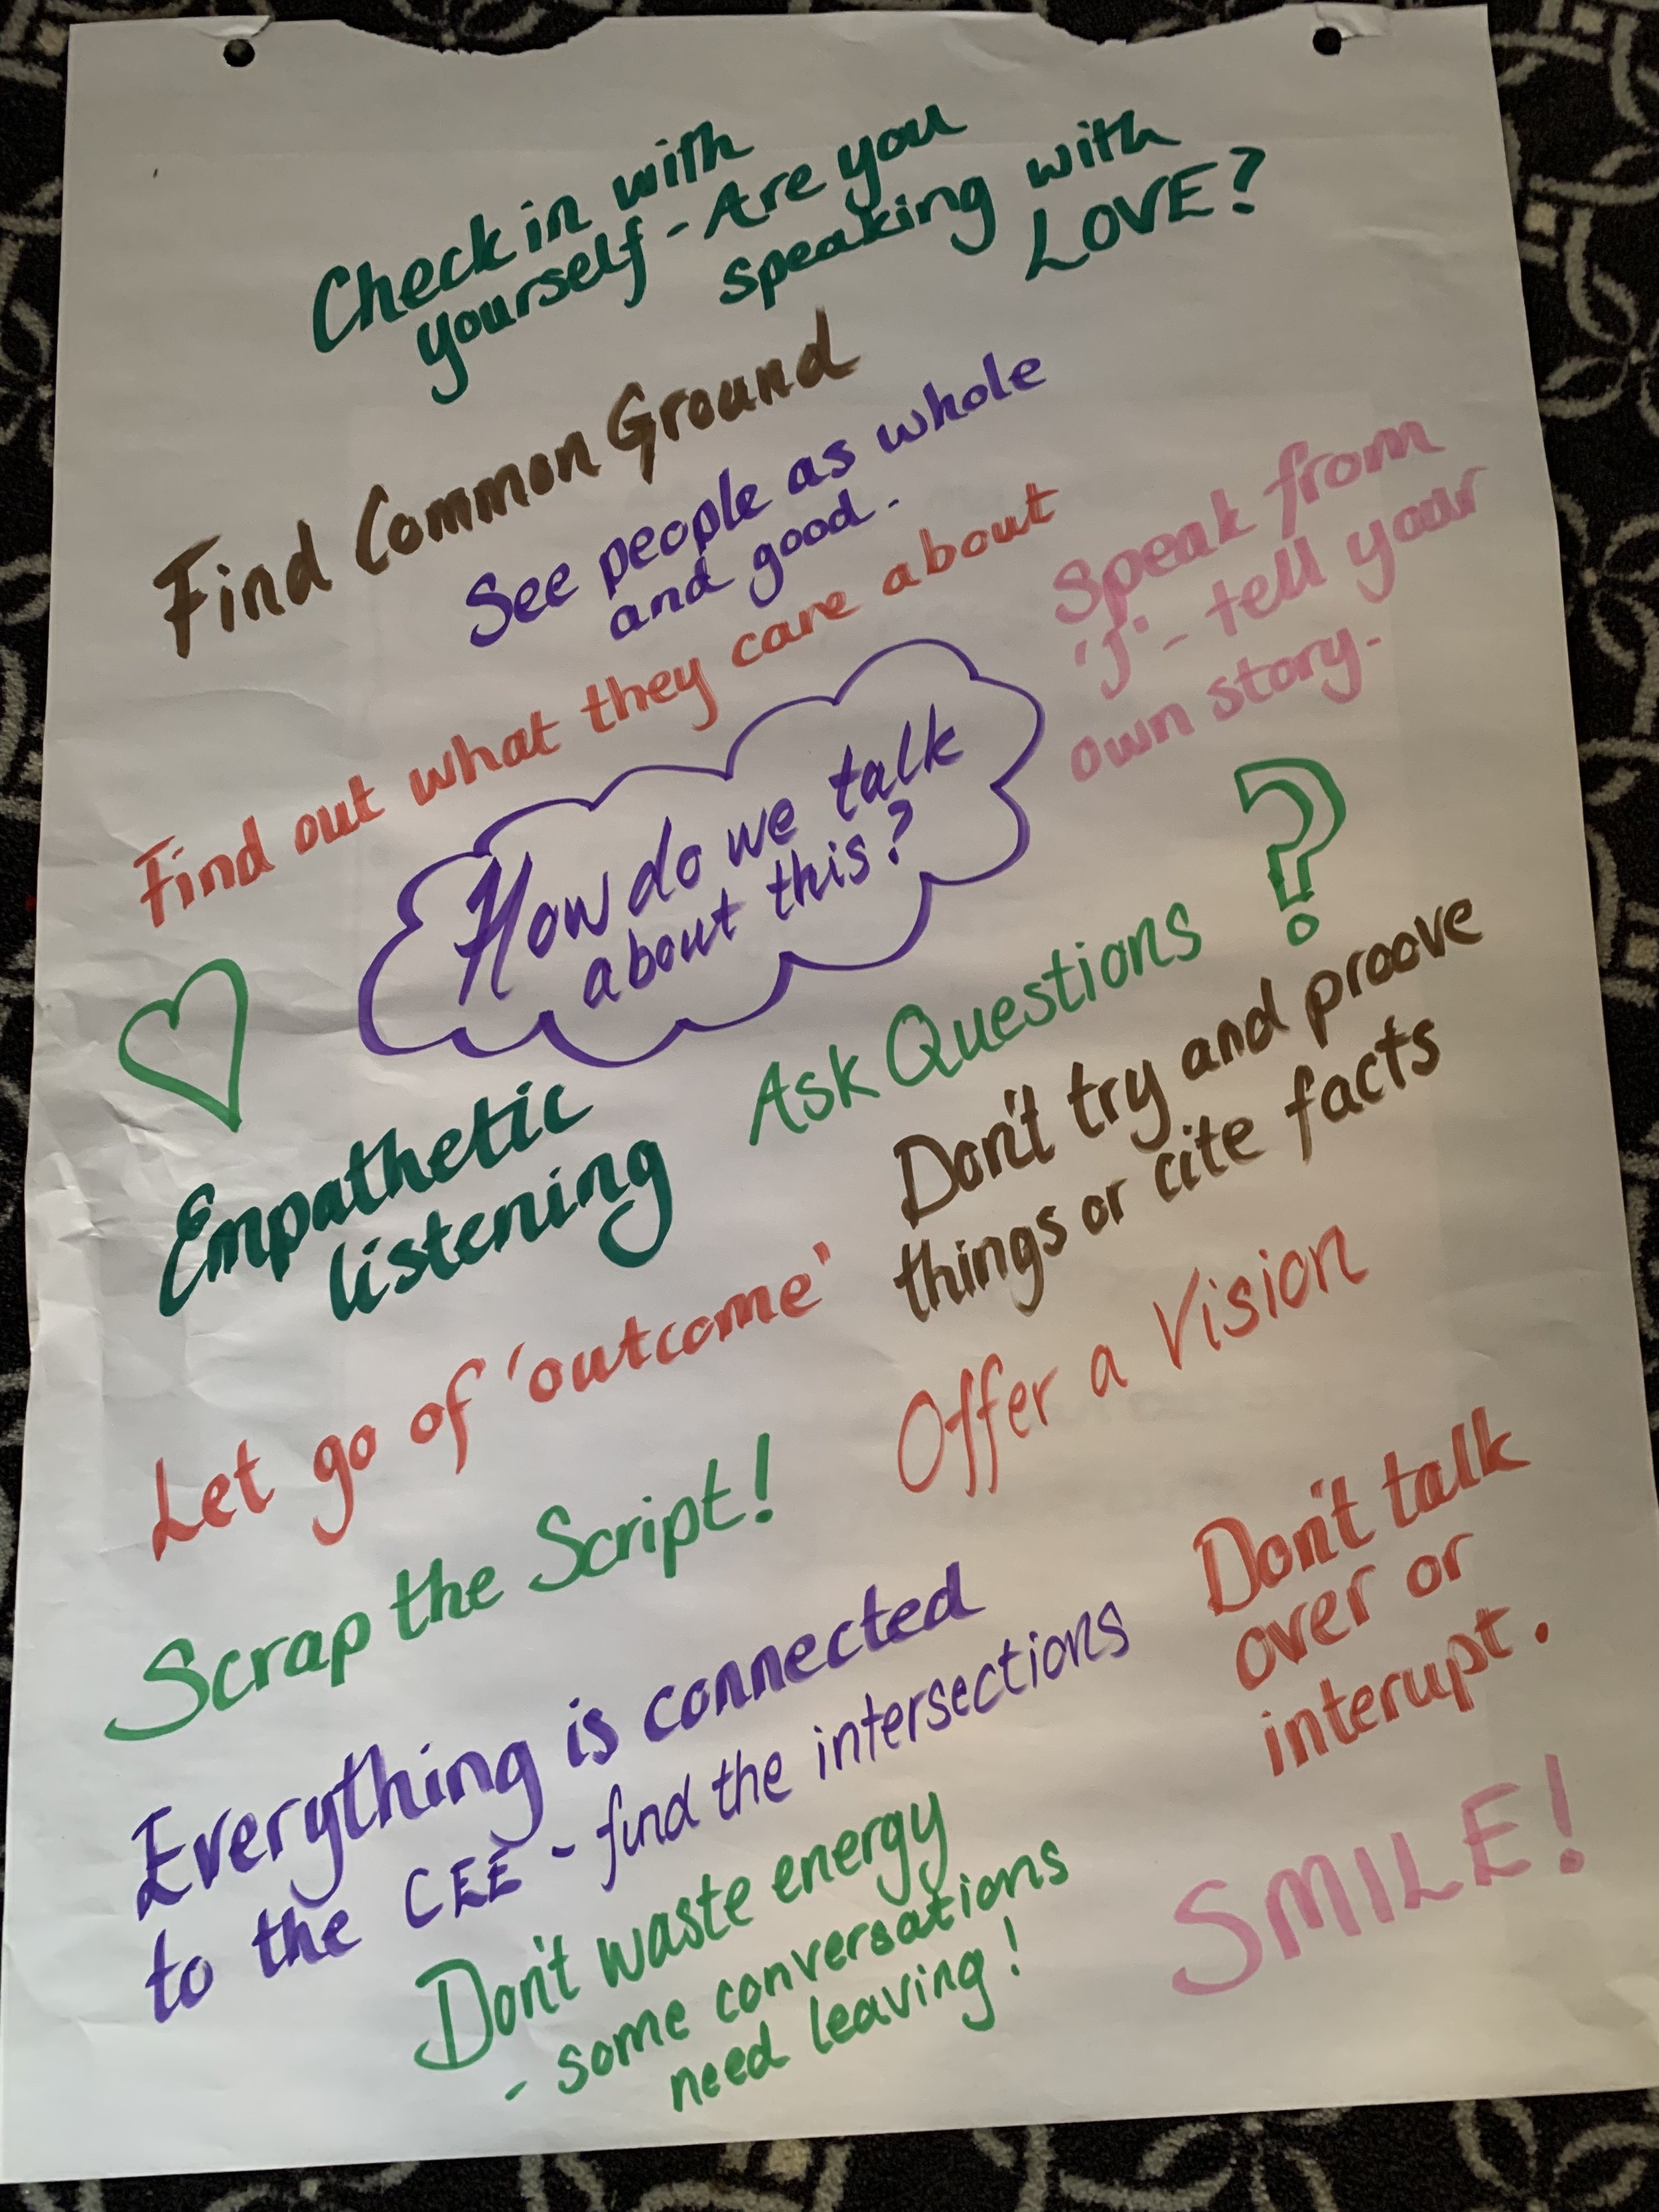 Check in with
yourself - Are you
speaking with
LOVE?
Find Common Ground
See people as whole
and good.
Find out what they care about
Speak from
'I' - tell your
own story.
How do we talk
about this?
Ask Questions ?
Empathetic
listening
Don't try and proove
things or cite facts
Let go of 'outcome'
Offer a Vision
Scrap the Script!
Don't talk
over or
interupt.
Everything is connected
to the CEE - find the intersections
Don't waste energy
- some conversations
need leaving!
SMILE!